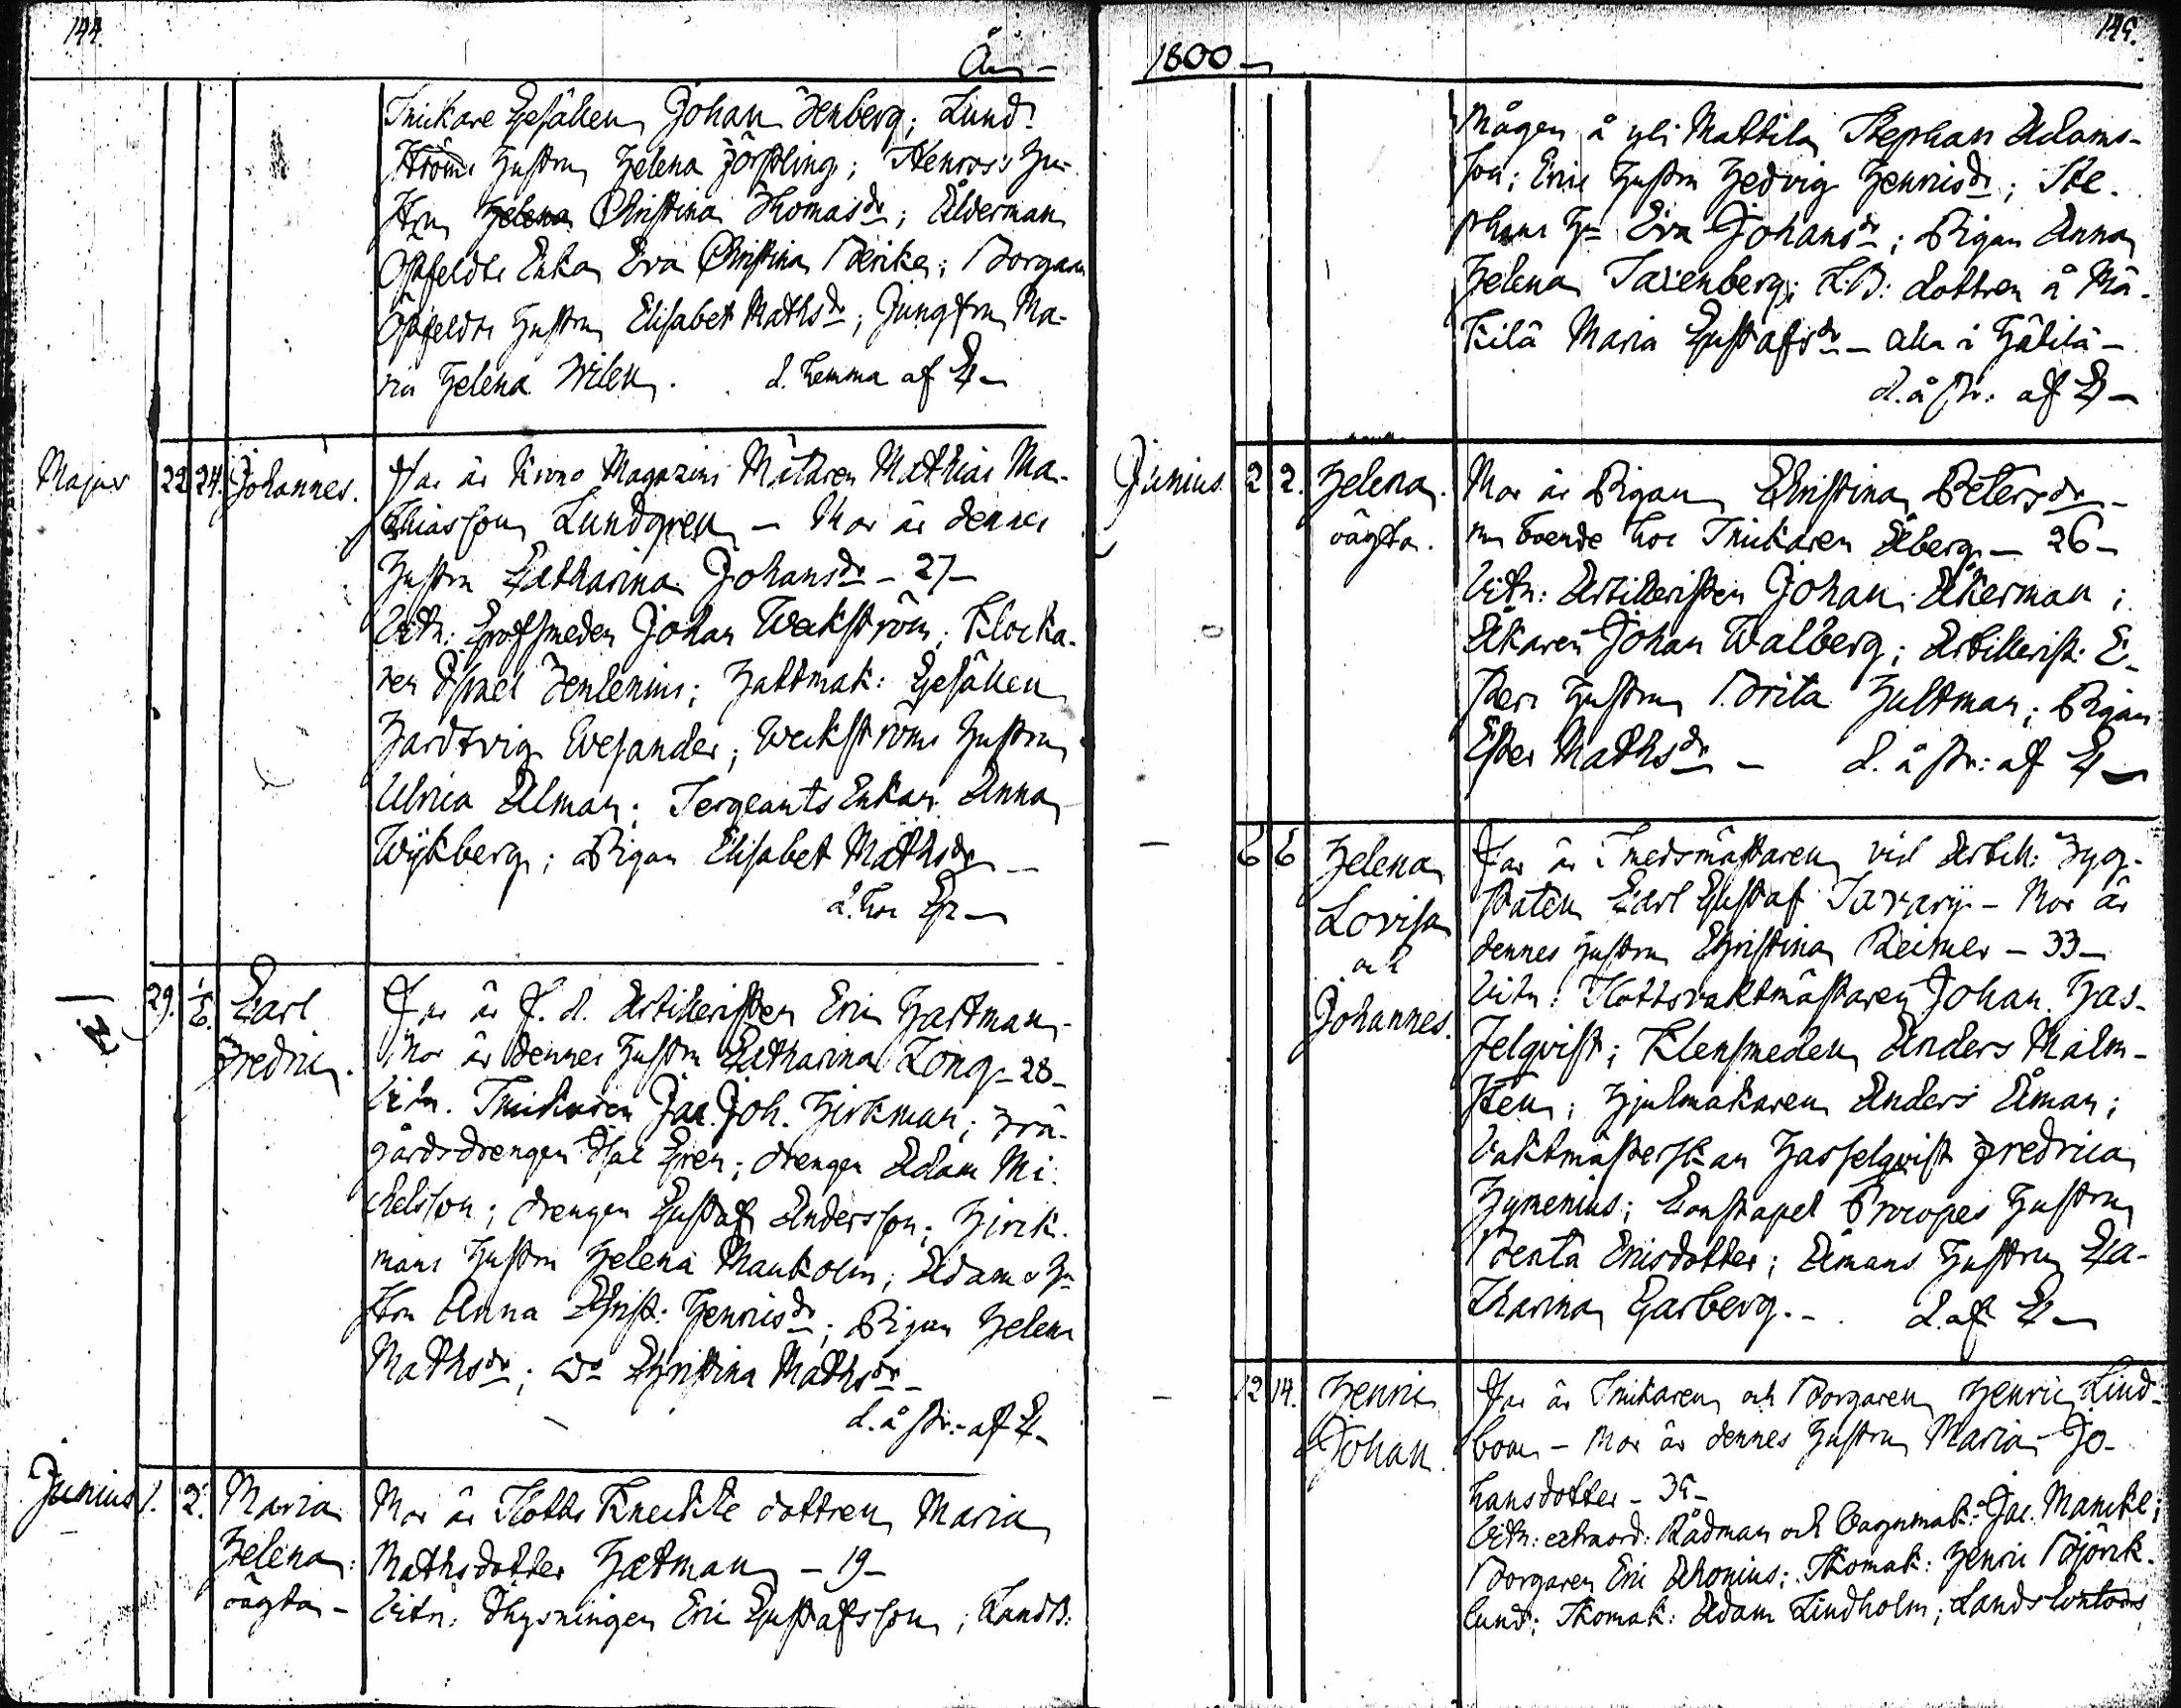 144.
År
Snickare Gesällen Johan Stenberg; Lund-
ströms Hustru Helena Förstling; Stenros's Hu-
stru Helena Christina Thomasdr; Ålderman
Öhfeldts Enka Eva Christina Bericke; Borgaren
Öhfeldts Hustru Elisabet Mathsdr; Jungfru Ma-
ria Helena Wilen. d. hemma af C
Majus 22 24. Johannes. Far är Krono Magazins Mätaren Mathias Ma-
thiasson Lundgren – Mor är dennes
Hustru Catharina Johansdr – 27 –
Vitn: Grofsmeden Johan Weckström; Klocka-
ren Israel Stenlenius; Hattmak: Gesällen
Hardtvig Wesander; Weckströms Hustru
Ulrica Alman; Sergeants Enkan Anna
Wijkberg; Pigan Elisabet Mathsdr –
d. hos
29. 1/6. Carl
Fredric. Far är f. d. Artilleristen Eric Hartman
Mor är dennes Hustru Catharina Long – 28 –
Vitn. Snickaren Jac. Joh. Hirkman; Trä-
gårdsdrengen Isac Gren; drengen Adam Mi-
chelsson; drengen Gustaf Andersson; Hirck-
mans Hustru Helena Mankolm; Adams Hu-
stru Anna Christ: Henricsdr; Pigan Helena
Mathsdr; do Christina Mathsdr –
d. å str: af C –
Junius 1. 2. Maria
Helena:
oägta – Mor är Slotts Knechte dottren Maria
Mathsdotter Hætman – 19 –
Vitn: Eric Gustafsson, LandB:
145.
1800 –
Mågen å yli Mattila Stephan Adams-
son; Erics Hustru Hedvig Henricsdr; Ste-
phans Hu Eva Johansdr; Pigan Anna
Helena Saxenberg; L:B: dottren å Mä-
kilä Maria Gustafsdr – alla i Hätilä –
d. å str: af C –
Junius. 2 2. Helena.
oägta. Mor är Pigan Christina Petersdr –
nu boende hos Snickaren Åberg – 26 –
Vitn: Artilleristen Johan Åkerman;
Åkaren Johan Walberg; Artillerist: E-
sters Hustru Brita Hultman; Pigan
Ester Mathsdr – d. å str: af C –
– 6 6 Helena
Lovisa
och
Johannes. Far är Smedsmästaren vid Artill: Tyg-
staten Carl Gustaf Savary – Mor är
dennes Hustru Christina Reimer – 33 –
Vitn: Slottsvaktmästaren Johan Has-
selqvist; Klensmeden Anders Malm-
sten; Hjulmakaren Anders Åman;
Vaktmästerskan Hasselqvist Fredrica
Hymenius; Constapel Procopes Hustru
Benta Ericsdotter; Åmans Hustru Ca-
tharina Garberg. – d. af C –
– 12 14. Henric
Johan. Far är Snickaren och Borgaren Henric Lind-
bom – Mor är dennes Hustru Maria Jo-
hansdotter – 35 –
Vitn: extraord: Rådman och Vagnmak: Jac. Mancke;
Borgaren Eric Thonius; Skomak: Henric Björck-
lund; Skomak: Adam Lindholm; Lands Contors